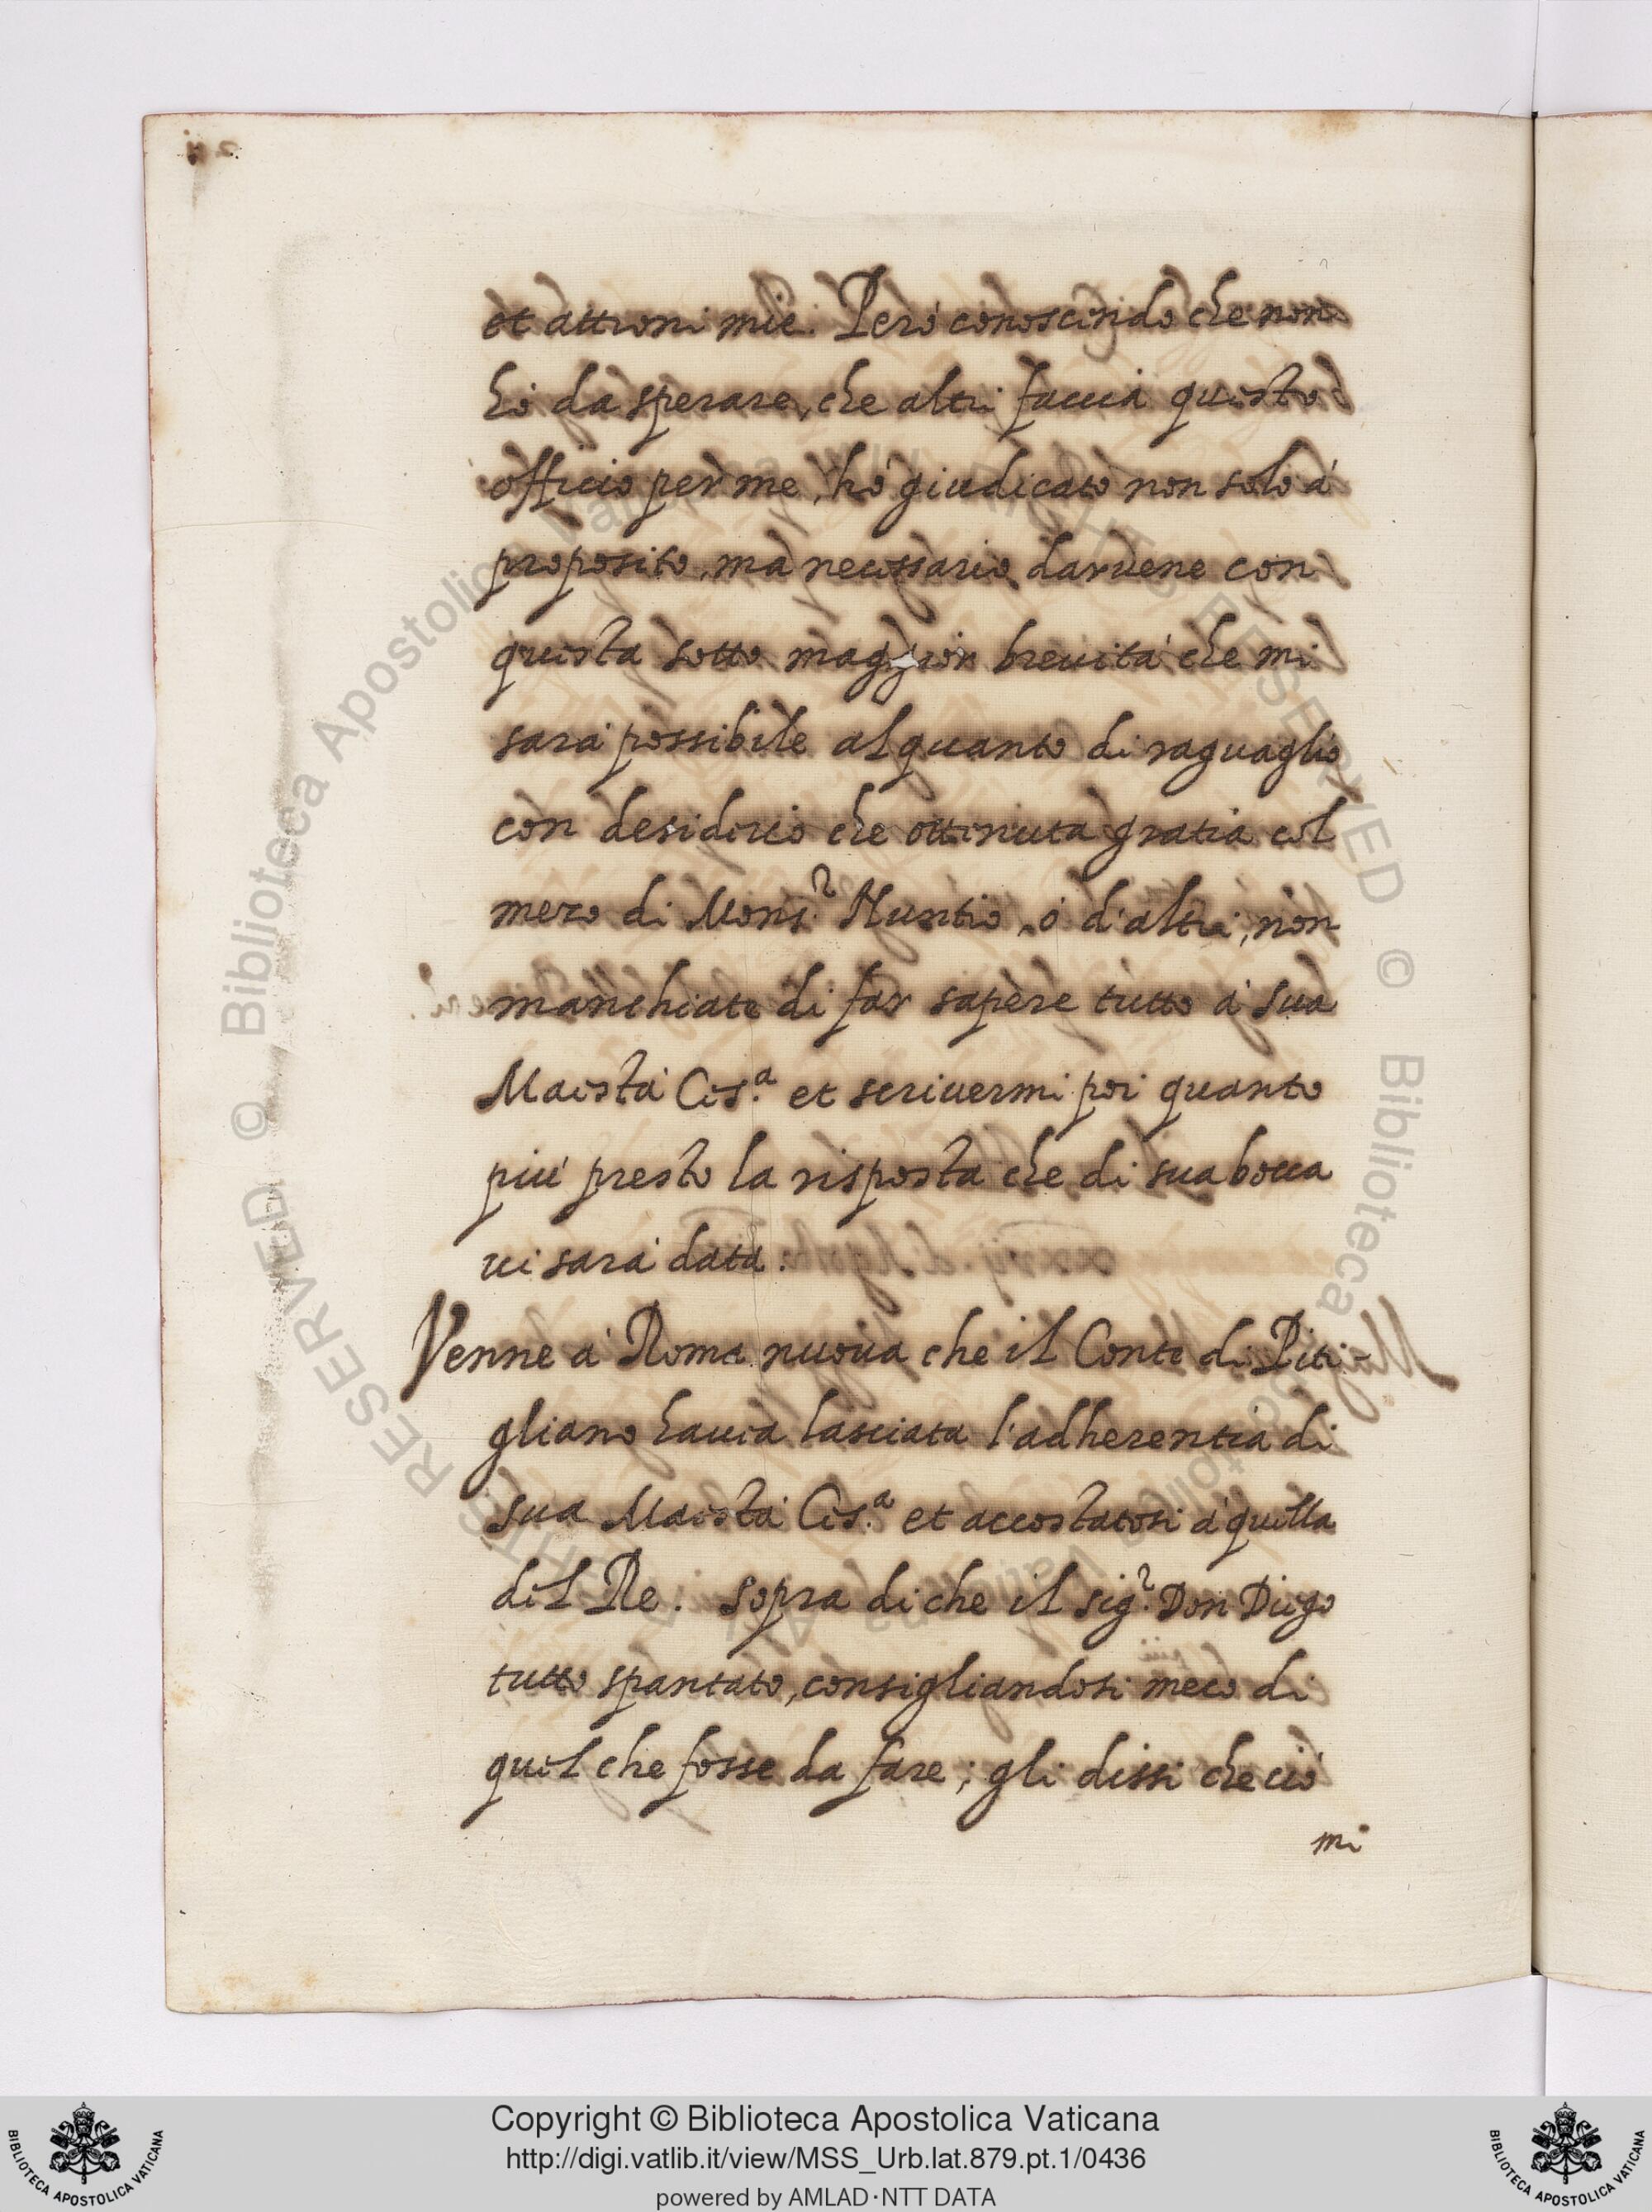 et attioni mie. Però conoscendo che non
hò da sperare, che altri faccia questo
officio per me, hò giudicato non solo à
proposito, ma necessario darvene con
questa sotto maggior breuità che mi
sarà possibile alquanto di raguaglio
con desiderio che ottenuta gratia col
mezo di Mons.r Nuntio, ò d'altri, non
manchiate di far sapere tutto à sua
Maestà Ces.a et scriuermi poi quanto
più presto la risposta che di sua bocca
ui sarà data.
Venne à Roma nuoua che il Conte di Piti-
gliano hauea lasciata l'adherentia di
sua Maestà Ces.a et accostatosi à quella
del Re. Sopra di che il sig.r Don Diego
tutto spantato, consigliandosi meco di
quel che fosse da fare; gli dissi che ciò
mi
© Biblioteca Apostolica Vaticana ALL RIGHTS RESERVED
© Biblioteca Apostolica Vaticana ALL RIGHTS RESERVED
Copyright © Biblioteca Apostolica Vaticana
http://digi.vatlib.it/view/MSS_Urb.lat.879.pt.1/0436
powered by AMLAD·NTT DATA
BIBLIOTECA APOSTOLICA VATICANA
BIBLIOTECA APOSTOLICA VATICANA